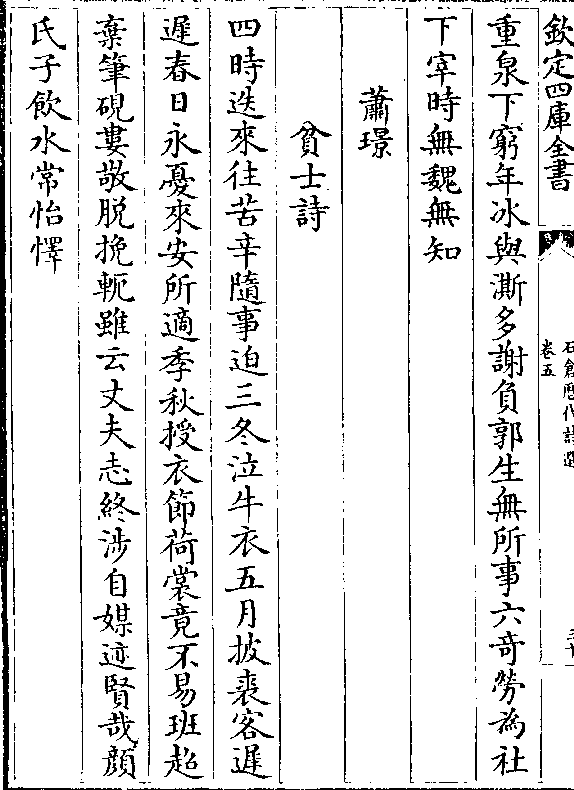 欽定四庫全書
石倉歷代詩選
卷五
三十
重泉下窮年冰與澌多謝負郭生無所事六奇勞為社
下宰時無魏無知
蕭璟
貧士詩
四時迭來往苦辛隨事迫三冬泣牛衣五月披裘客遲
遲春日永憂來安所適季秋授衣節荷裳竟不易班超
棄筆硯婁敬脫挽軛雖云丈夫志終涉自媒迹賢哉顔
氏子飲水常怡懌